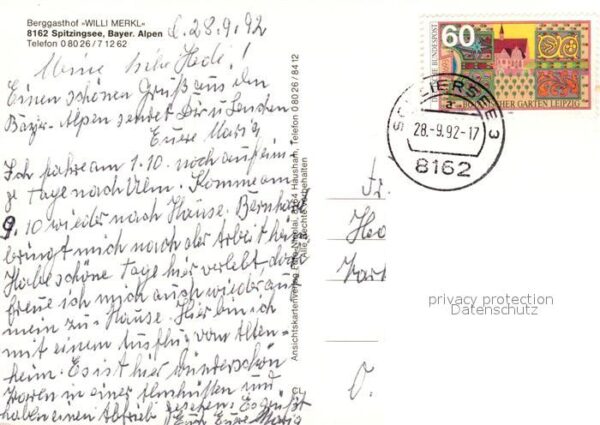 Berggasthof »WILLI MERKL«
8162 Spitzingsee, Bayer. Alpen
Telefon 0 80 26 / 7 12 62
28.9.92
Meine liebe Hedi!
Einen schönen Gruß aus den
Bayer-Alpen sendet Dir u
Euere Maria
Ich fahre am 1.10. noch auf ein
Tage nach Ulm. Komme am
9.10 wieder nach Hause. Bernhard
bringt mich nach der Arbeit heim
Habe schöne Tage hier verlebt,
freue ich mich auch wieder auf
mein zu-Hause. Hier bin ich
mit einem Ausflug vom Alten-
heim. Es ist hier wunderschön
Waren in einer Almhütten und
haben einen Abtrieb gesehen. Es grüßt
Euch Euere Maria
Ansichtskartenverlag Hausham, Telefon 0 80 26 / 84 12
Alle Rechte vorbehalten
60
DEUTSCHE BUNDESPOST
BOTANISCHER GARTEN LEIPZIG
SCHLIERSEE 3
a
28.-9.92-17
8162
privacy protection
Datenschutz